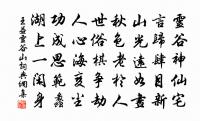 靈谷神仙宅
言歸肆目新
山光遠如畫
秋色老於人
世俗棋爭劫
人心海變塵
功成思範蠡
湖上一閑身
王益靈谷山詞典網集